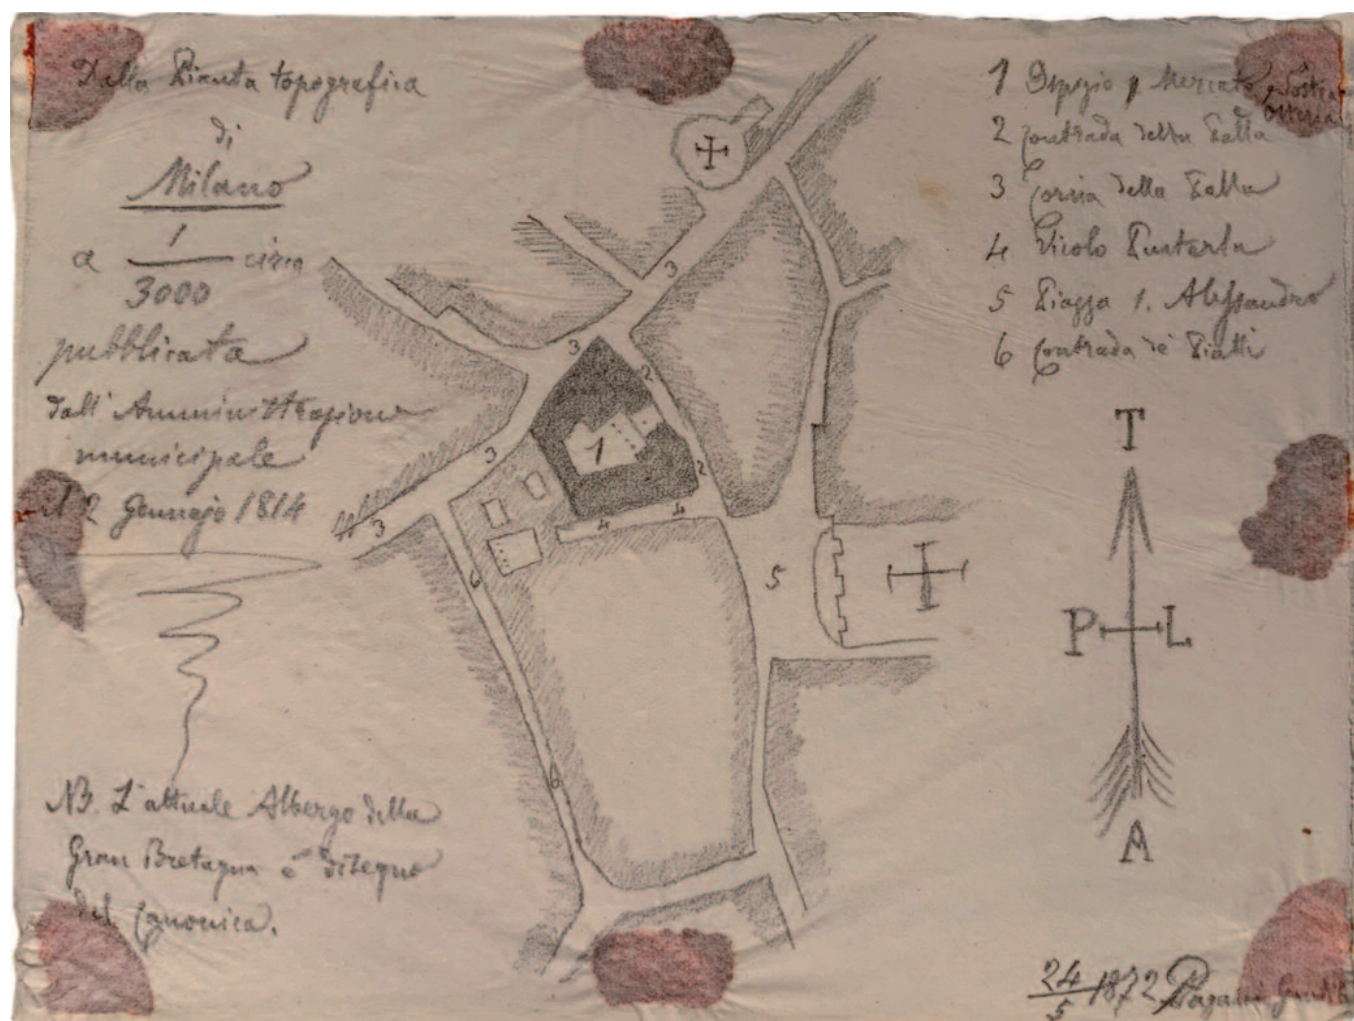 Dalla Pianta topografica
di
Milano
a 1/3000 circa
pubblicata
dall' Amministrazione
municipale
il 2 Gennajo 1814
NB. L'attuale Albergo della
Gran Bretagna è disegno
del Canonica.
1 Mercato Sostra
Osteria
2 Contrada della Palla
3 Corsia della Palla
4 Vicolo Pusterla
5 Piazza S. Alessandro
6 Contrada de' Piatti
T
P L
A
3
3
2
1
3
2
4 4
3
5
6
6
24/5 1872